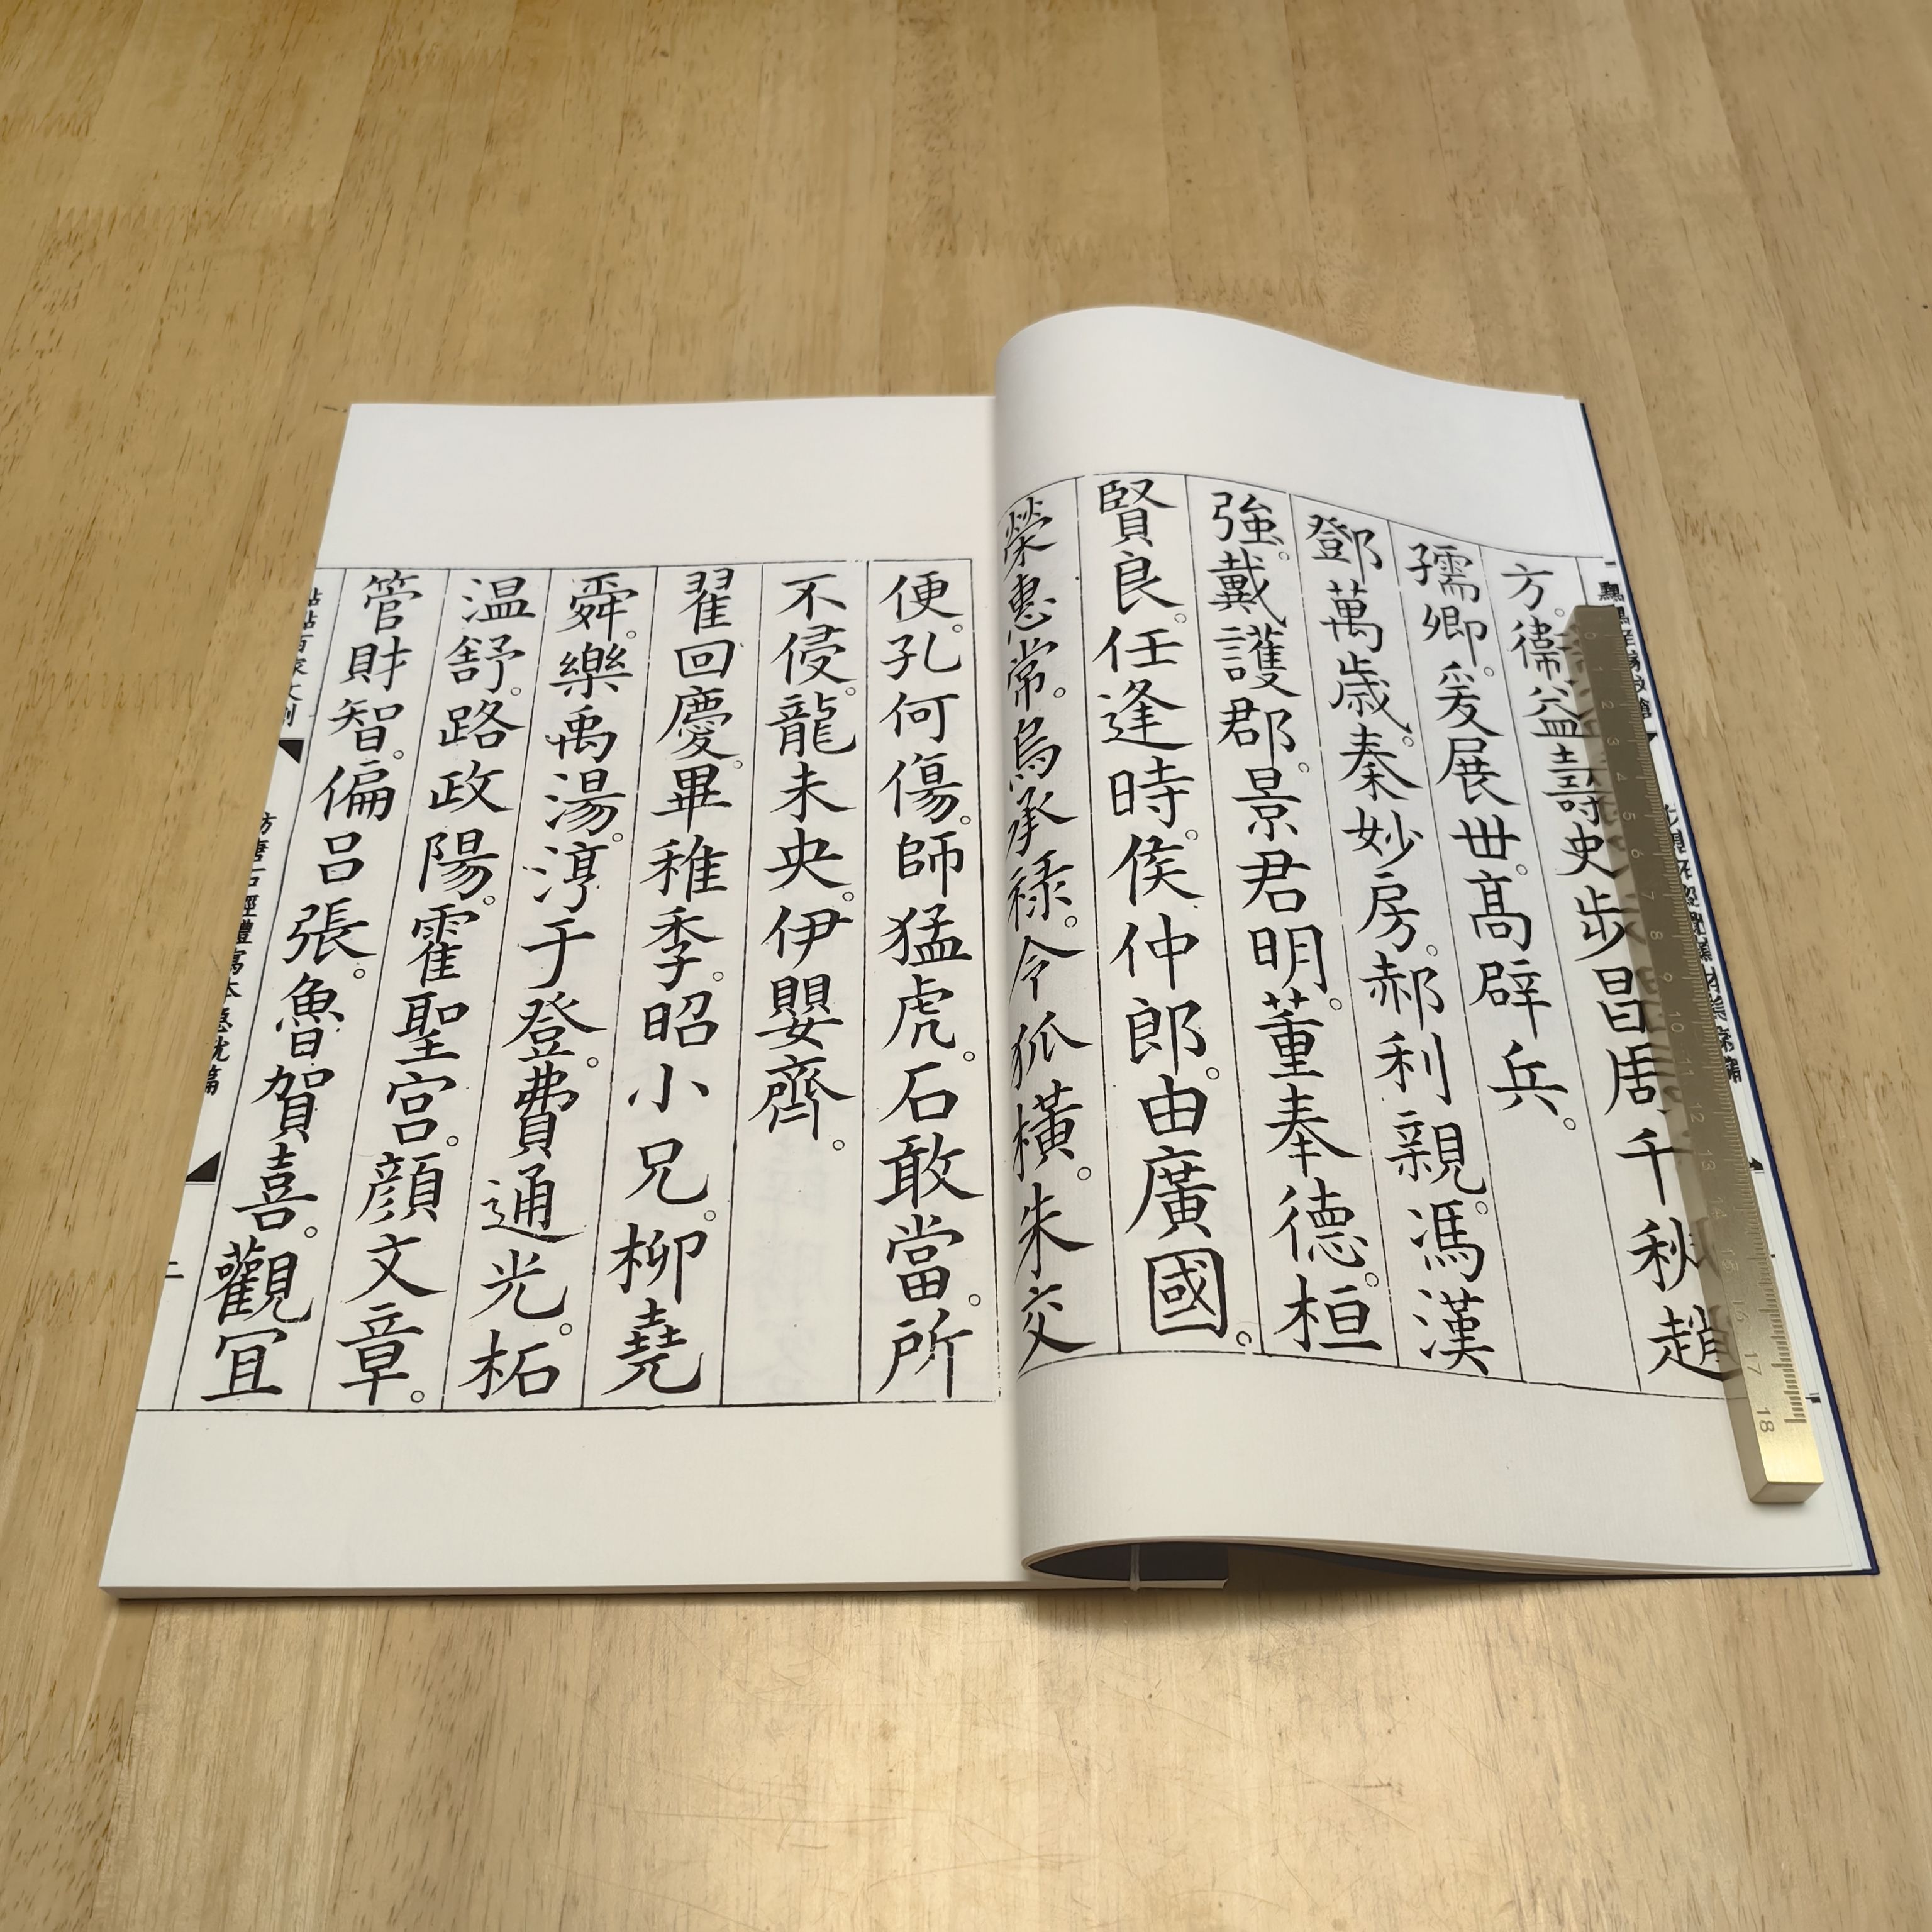 方。衛益壽史步昌周千秋趙
孺卿。爰展世。高辟兵。
鄧萬歲。秦妙房。郝利親。馮漢
強。戴護郡。景君明。董奉德。桓
賢良。任逢時。侯仲郎。由廣國。
榮惠常。烏承祿。令狐橫。朱交
便。孔何傷。師猛虎。石敢當。所
不侵。龍未央。伊嬰齊。
翟回慶。畢稚季。昭小兄。柳堯
舜。樂禹湯。淳于登。費通光。柘
温舒。路政陽。霍聖宮。顏文章。
管財智。偏呂張。魯賀喜。觀宜
仿唐石經體寫本急就篇
二
0 1 2 3 4 5 6 7 8 9 10 11 12 13 14 15 16 17 18